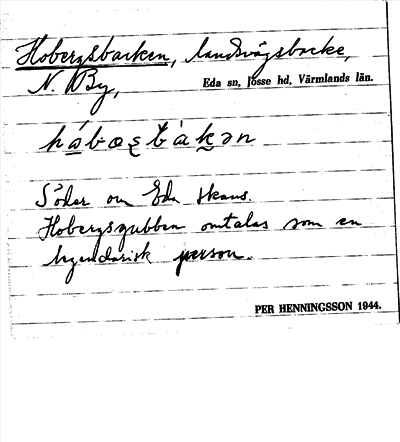 Hobergsbacken, landsvägsbacke,
N. By, Eda sn, Jösse hd, Värmlands län.
Söder om Eda skans.
Hobergsgubben omtalas som en
legendarisk person.
PER HENNINGSSON 1944.